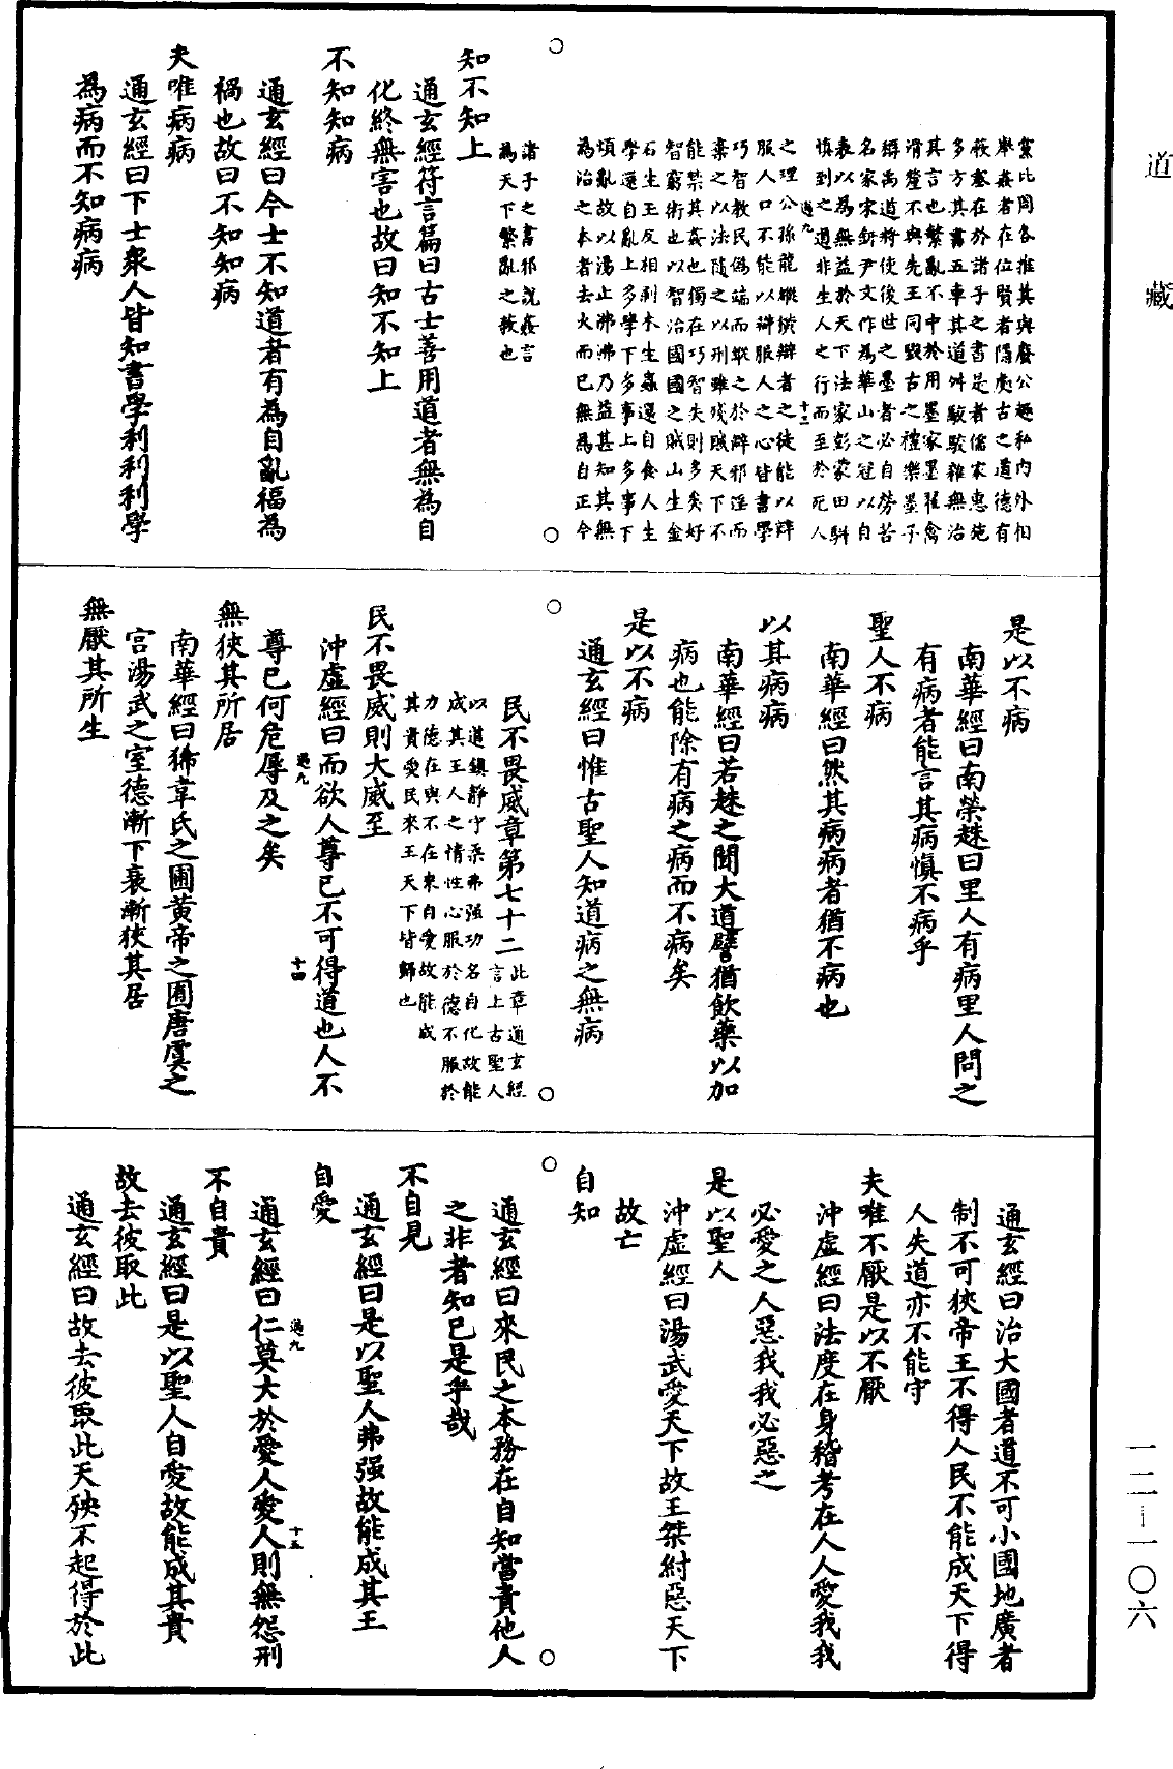 道藏
黨比周各推其與廢公趨私內外相
舉姦者在位賢者隱處古之道德有
蔽塞在於諸子之書是者儒家惠施
多方其書五車其道舛駁駁雜無治
其言也繁亂不中於用墨家墨翟禽
滑釐不與先王同毀古之禮樂墨子
縟禹道將使後世之墨者必自勞苦
名家宋鈃尹文作為華山之冠以自
表以為無益於天下法家彭蒙田駢
慎到之道非生人之行而至於死人
過九 十三
之理公孫龍縱橫辯者之徒能以辯
服人口不能以辯服人之心皆書學
巧智教民偽端而縱之於辟邪淫而
棄之以法隨之以刑雖殘賊天下不
能禁其姦也獨在巧智失則多矣好
智窮術也以智治國國之賊山生金
石生玉反相剥木生蟲還自食人生
學還自亂上多學下多事上多事下
煩亂故以湯止沸沸乃益甚知其無
為治之本者去火而已無為自正今
諸子之書邪說姦言
為天下繁亂之蔽也
知不知上
通玄經符言篇曰古士善用道者無為自
化終無害也故曰知不知上
不知知病
通玄經曰今士不知道者有為自亂福為
禍也故曰不知知病
夫唯病病
通玄經曰下士衆人皆知書學利利利學
為病而不知病病
是以不病
南華經曰南榮趎曰里人有病里人問之
有病者能言其病慎不病乎
聖人不病
南華經曰然其病病者猶不病也
以其病病
南華經曰若趎之聞大道譬猶飲藥以加
病也能除有病之病而不病矣
是以不病
通玄經曰惟古聖人知道病之無病
民不畏威章第七十二此章通玄經
言上古聖人
以道鎮静守柔弗强功名自化故能
成其王人之情性心服於德不服於
力德在與不在來自愛故能成
其貴愛民來王天下皆歸也
民不畏威則大威至
沖虛經曰而欲人尊已不可得道也人不
過九 十四
尊已何危辱及之矣
無狹其所居
南華經曰狶韋氏之圃黄帝之囿唐虞之
宮湯武之室德漸下衰漸狹其居
無厭其所生
通玄經曰治大國者道不可小國地廣者
制不可狹帝王不得人民不能成天下得
人失道亦不能守
夫唯不厭是以不厭
沖虛經曰法度在身稽考在人人愛我我
必愛之人惡我我必惡之
是以聖人
沖虛經曰湯武愛天下故王桀紂惡天下
故亡
自知
通玄經曰來民之本務在自知當責他人
之非者知已是乎哉
不自見
通玄經曰是以聖人弗强故能成其王
自愛
過九 十五
通玄經曰仁莫大於愛人愛人則無怨刑
不自貴
通玄經曰是以聖人自愛故能成其貴
故去彼取此
通玄經曰故去彼取此天殃不起得於此
一二—一〇六